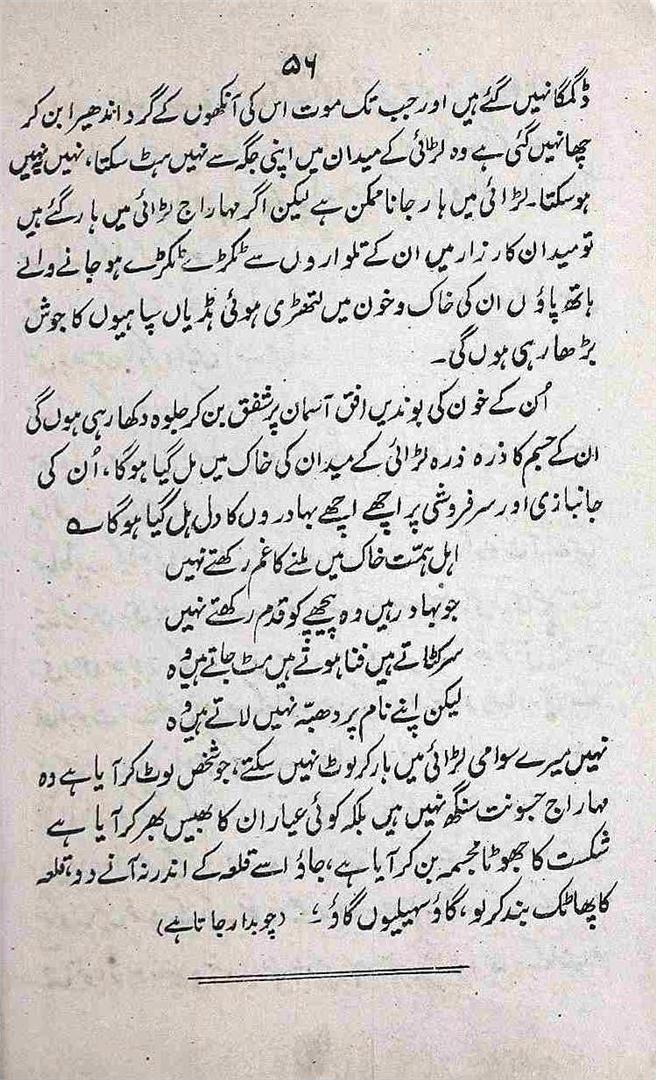 ۵۶
ڈگمگا نہیں گئے ہیں اور جب تک موت اس کی آنکھوں کے گرد اندھیرا بن کر
چھا نہیں گئی ہے وہ لڑائی کے میدان میں اپنی جگہ سے نہیں ہٹ سکتا، نہیں نہیں
ہو سکتا۔ لڑائی میں ہار جانا ممکن ہے لیکن اگر مہاراج لڑائی میں ہار گئے ہیں
تو میدان کارزار میں ان کے تلواروں سے ٹکڑے ٹکڑے ہو جانے والے
ہاتھ پاؤں ان کی خاک و خون میں لتھڑی ہوئی ہڈیاں سپاہیوں کا جوش
بڑھا رہی ہوں گی۔
اُن کے خون کی بوندیں افق آسمان پر شفق بن کر جلوہ دکھا رہی ہوں گی
ان کے جسم کا ذرہ ذرہ لڑائی کے میدان کی خاک میں مل گیا ہوگا، اُن کی
جانبازی اور سرفروشی پر اچھے اچھے بہادروں کا دل ہل گیا ہوگا ؎
اہل ہمّت خاک میں ملنے کا غم رکھتے نہیں
جو بہادر ہیں وہ پیچھے کو قدم رکھتے نہیں
سر کٹاتے ہیں فنا ہوتے ہیں مٹ جاتے ہیں وہ
لیکن اپنے نام پر دھبّہ نہیں لاتے ہیں وہ
نہیں میرے سوامی لڑائی میں ہار کر لوٹ نہیں سکتے، جو شخص لوٹ کر آیا ہے وہ
مہاراج جسونت سنگھ نہیں ہیں بلکہ کوئی عیار ان کا بھیس بھر کر آیا ہے
شکست کا جھوٹا مجسمہ بن کر آیا ہے، جاؤ اسے قلعہ کے اندر نہ آنے دو، قلعہ
کا پھاٹک بند کر لو، گاؤ سہیلیوں گاؤ۔ (چوبدار جاتا ہے)